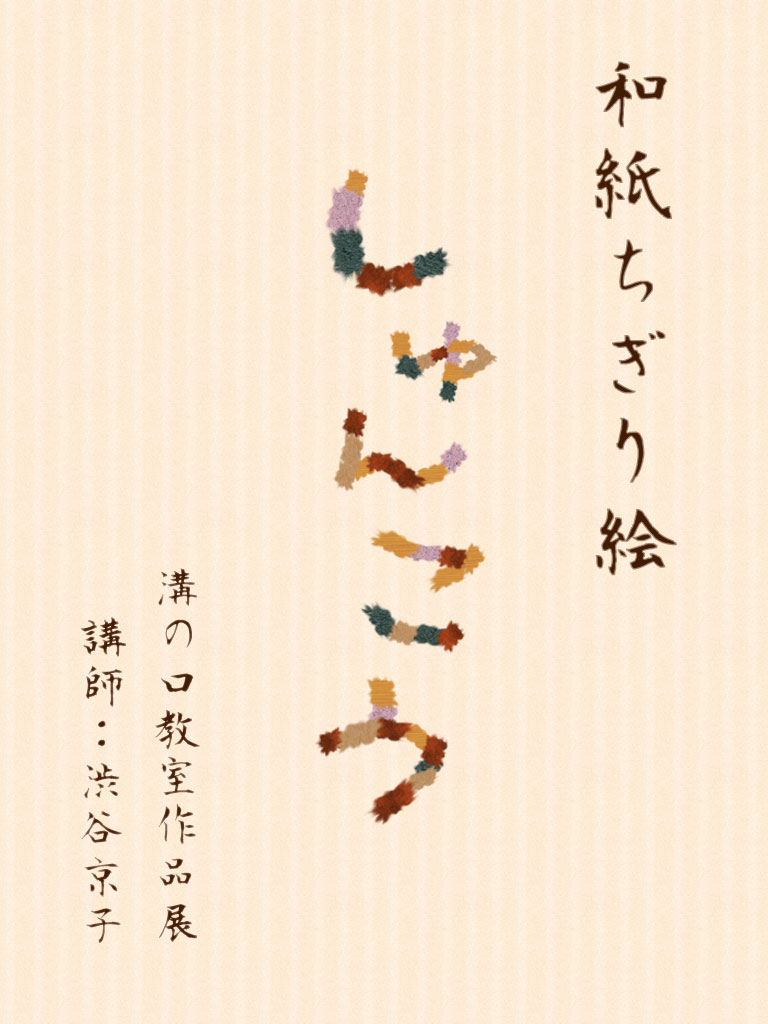 和紙ちぎり絵
しゅんこう
溝の口教室作品展
講師：渋谷京子